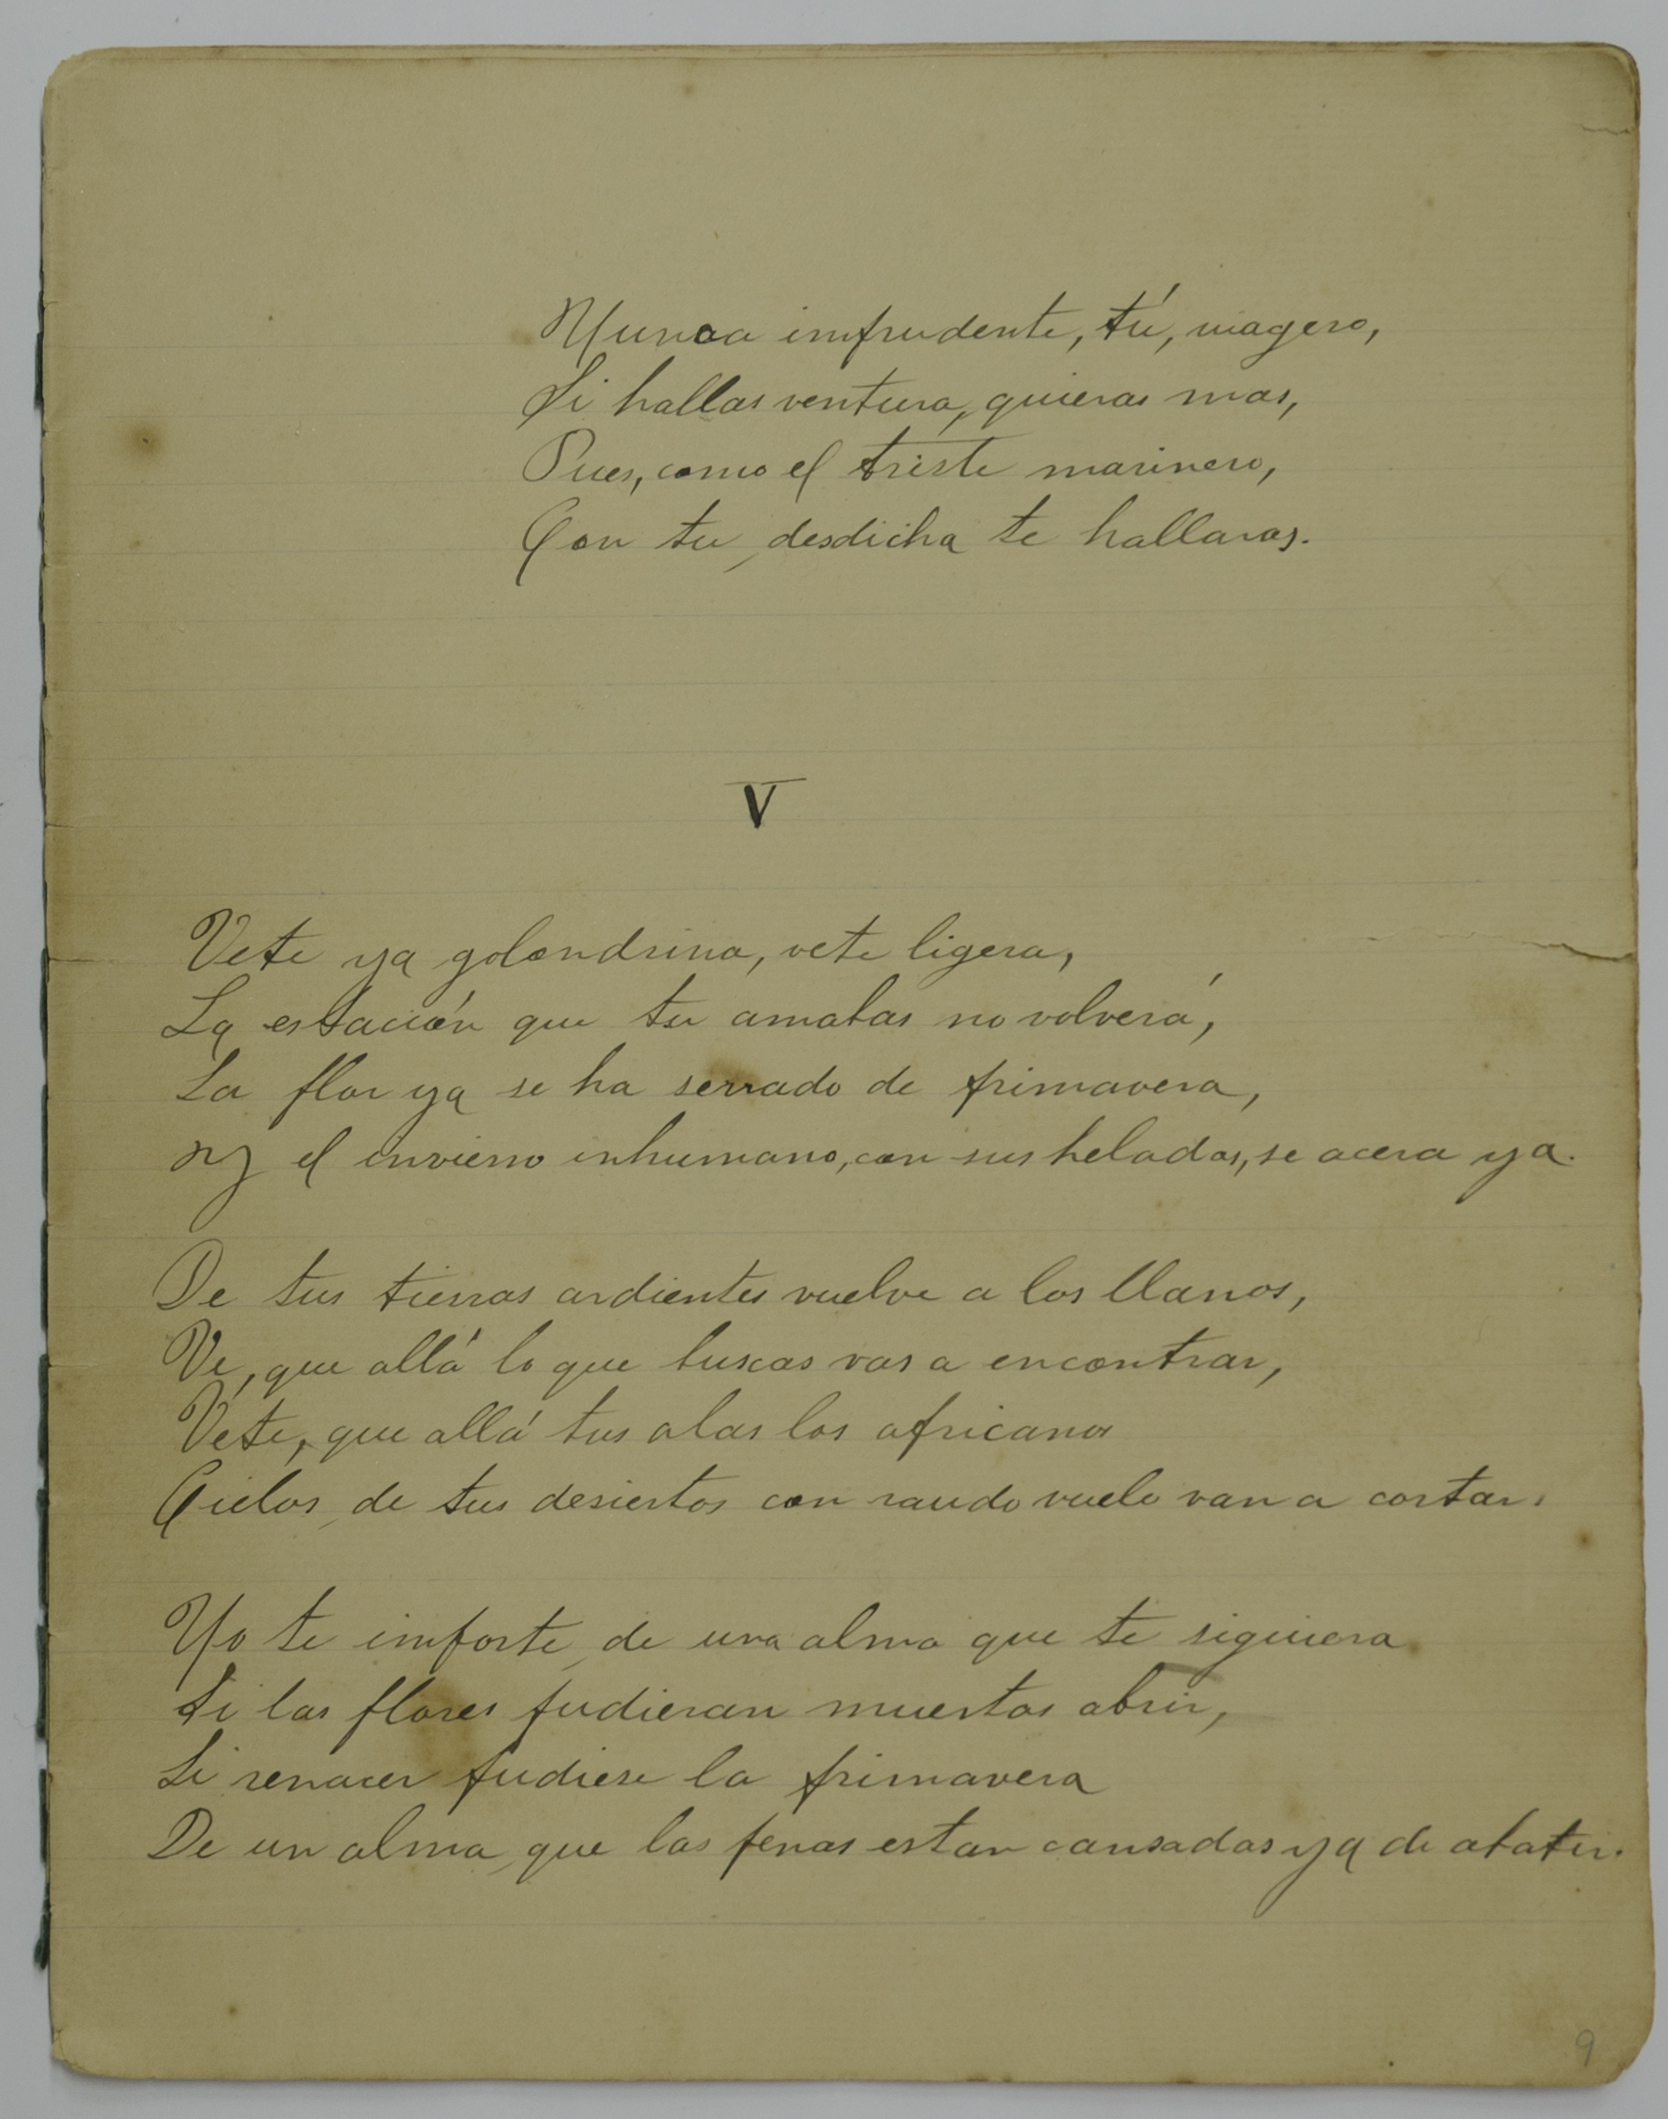 Nunca imprudente, tú, viagero,
Si hallas ventura, quieras mas,
Pues, como el triste marinero,
Con tu desdicha te hallaras.
V
Vete ya golondrina, vete ligera,
La estación que tu amabas no volverá,
La flor ya se ha serrado de primavera,
Y el invierno inhumano, con sus heladas, se acera ya.
De tus tierras ardientes vuelve a los llanos,
Ve, que allá lo que buscas vas a encontrar,
Vete, que allá tus alas los africanos
Cielos de tus desiertos con raudo vuelo van a cortar.
Yo te importe de una alma que te siguiera
Si las flores pudieran muertas abrir,
Si renacer pudiese la primavera
De un alma que las penas estan cansadas ya de abatir.
9